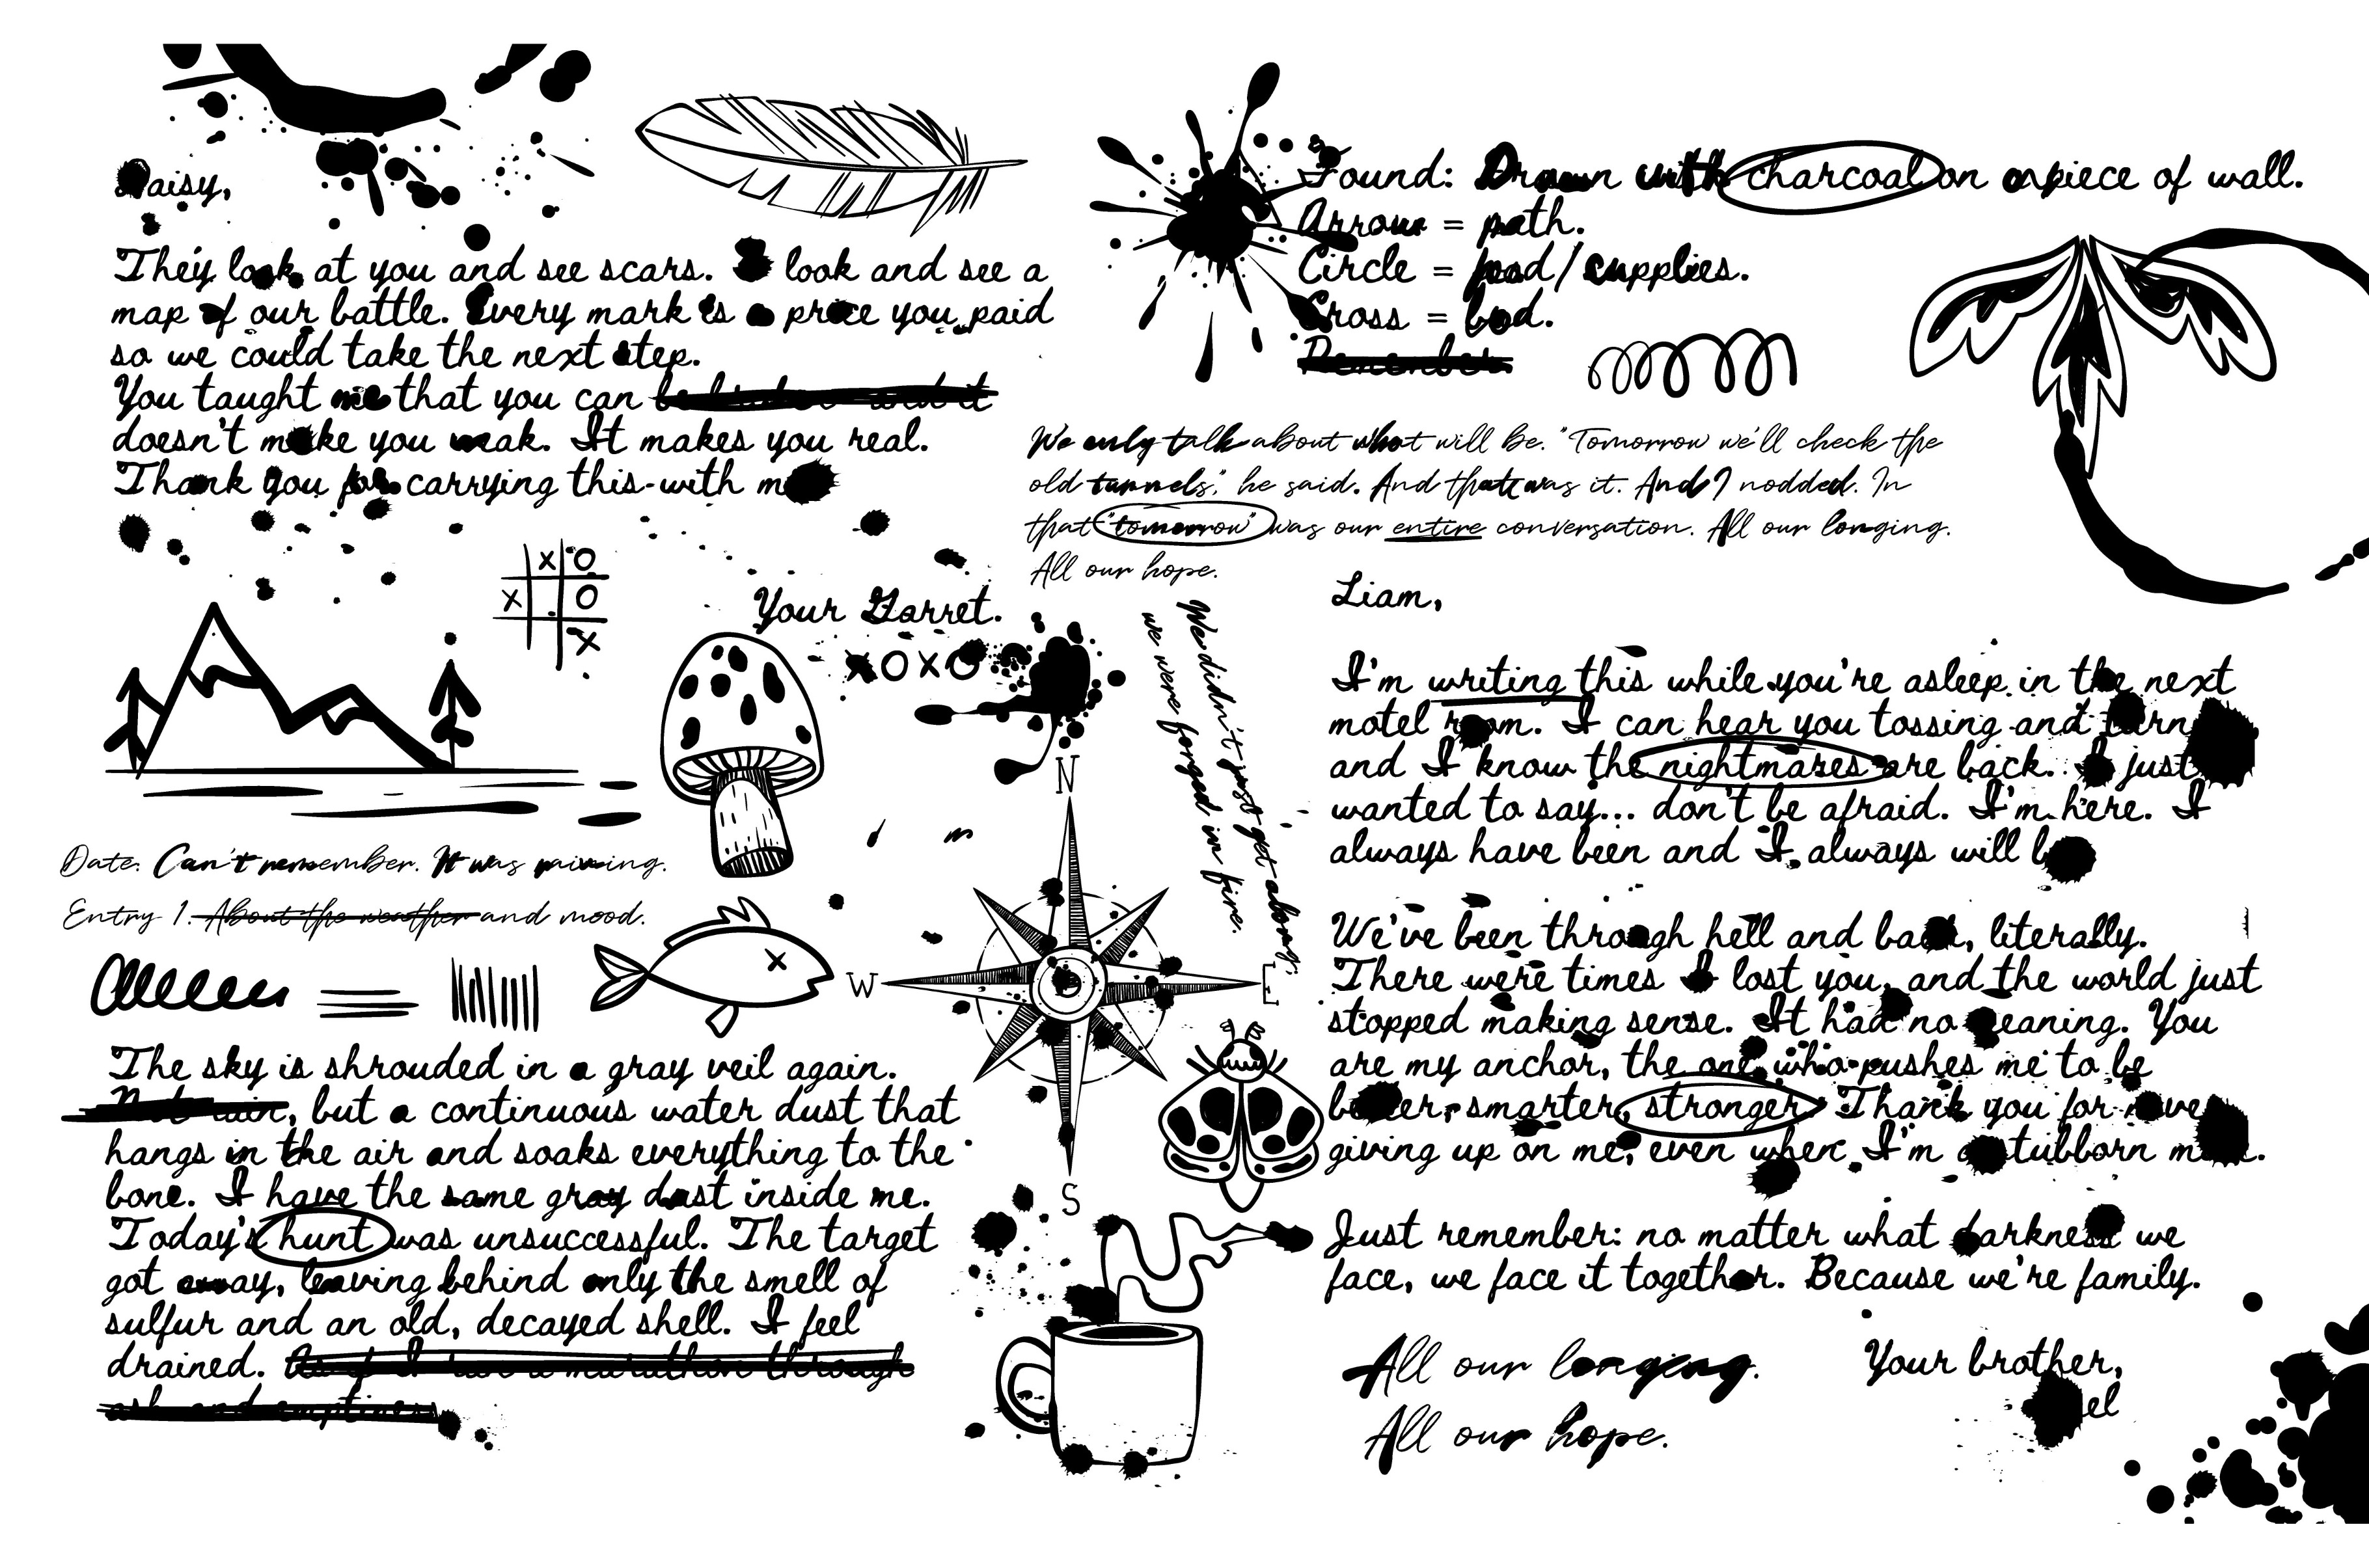 Daisy,
They look at you and see scars. I look and see a
map of our battle. Every mark is a price you paid
so we could take the next step.
You taught me that you can and it
doesn't make you weak. It makes you real.
Thank you for carrying this with
x o
x o
x
Your Garret.
xoxo
Date: Can't remember. It was raining.
Entry 1. About the weather and mood.
The sky is shrouded in a gray veil again.
Not rain, but a continuous water dust that
hangs in the air and soaks everything to the
bone. I have the same gray dust inside me.
Today's hunt was unsuccessful. The target
got away, leaving behind only the smell of
sulfur and an old, decayed shell. I feel
drained. As if I ran a marathon through
ash and emptiness
Found: Drawn with charcoal on a piece of wall.
Arrow = path.
Circle = food/supplies.
Cross = bad.
Remember.
We only talk about what will be. "Tomorrow we'll check the
old tunnels," he said. And that was it. And I nodded. In
that "tomorrow" was our entire conversation. All our longing.
All our hope.
We didn't just get along,
we were forged in fire.
N
W
E
S
Liam,
I'm writing this while you're asleep in the next
motel room. I can hear you tossing and turn
and I know the nightmares are back. I just
wanted to say... don't be afraid. I'm here. I
always have been and I always will b
We've been through hell and back, literally.
There were times I lost you, and the world just
stopped making sense. It had no meaning. You
are my anchor, the one who pushes me to be
better, smarter, stronger. Thank you for never
giving up on me, even when I'm a stubborn
Just remember: no matter what darkness we
face, we face it together. Because we're family.
All our longing.
All our hope.
Your brother,
el